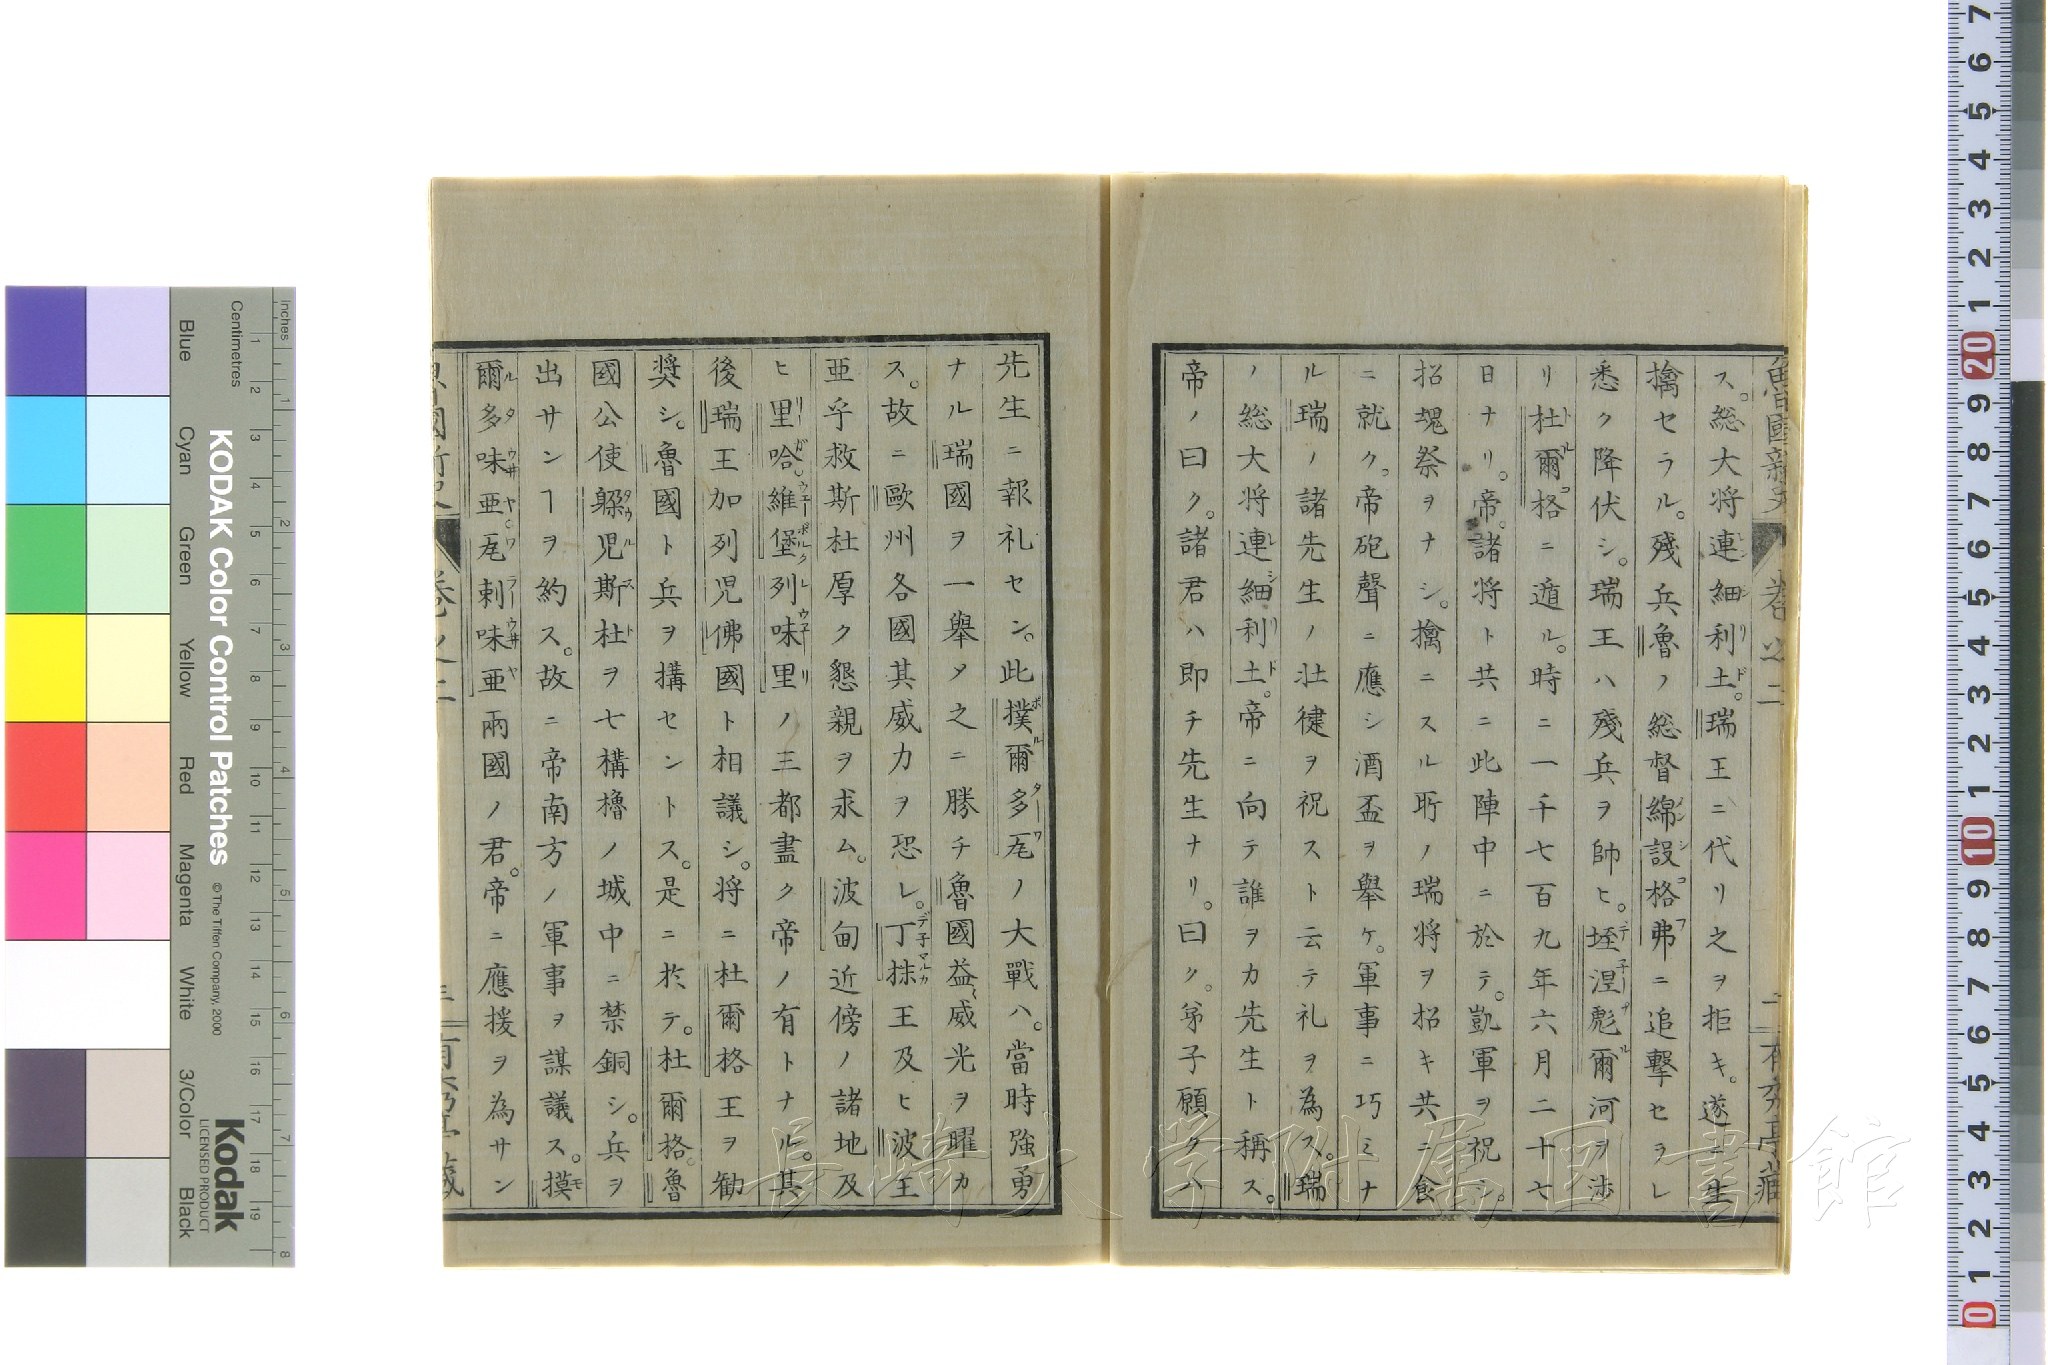 魯國新史
卷之二
ス。総大将連細利土。瑞王ニ代リ之ヲ拒キ。遂ニ生
擒セラル。殘兵魯ノ総督綿設格弗ニ追撃セラレ
悉ク降伏シ。瑞王ハ殘兵ヲ帥ヒ。垤涅彪爾河ヲ渉
リ杜爾格ニ遁ル。時ニ一千七百九年六月二十七
日ナリ。帝。諸将ト共ニ此陣中ニ於テ。凱軍ヲ祝シ。
招魂祭ヲナシ。擒ニスル所ノ瑞将ヲ招キ共ニ食
ニ就ク。帝砲聲ニ應シ酒盃ヲ舉ケ。軍事ニ巧ミナ
ル瑞ノ諸先生ノ壮健ヲ祝スト云テ礼ヲ為ス。瑞
ノ総大将連細利土。帝ニ向テ誰ヲカ先生ト稱ス。
帝ノ曰ク。諸君ハ即チ先生ナリ。曰ク。弟子願クハ
先生ニ報礼セン。此撲爾多厖ノ大戰ハ。當時強勇
ナル瑞國ヲ一舉メ之ニ勝チ魯國益〻威光ヲ曜カ
ス。故ニ歐州各國其威力ヲ恐レ。丁抹王及ヒ波王
亜乎救斯杜厚ク懇親ヲ求ム。波甸近傍ノ諸地及
ヒ里哈維堡列味里ノ三都盡ク帝ノ有トナル。其
後瑞王加列児佛國ト相議シ。将ニ杜爾格王ヲ勧
奨シ。魯國ト兵ヲ構セントス。是ニ於テ。杜爾格。魯
國公使躱児斯杜ヲ七構櫓ノ城中ニ禁錮シ。兵ヲ
出サンヿヲ約ス。故ニ帝南方ノ軍事ヲ謀議ス。摸
爾多味亜厖剌味亜兩國ノ君。帝ニ應援ヲ為サン
卷ノ二
長崎大学附属図書館
KODAK Color Control Patches
© The Tiffen Company, 2000
Kodak
LICENSED PRODUCT
Centimetres
Inches
Blue
Cyan
Green
Yellow
Red
Magenta
White
3/Color
Black